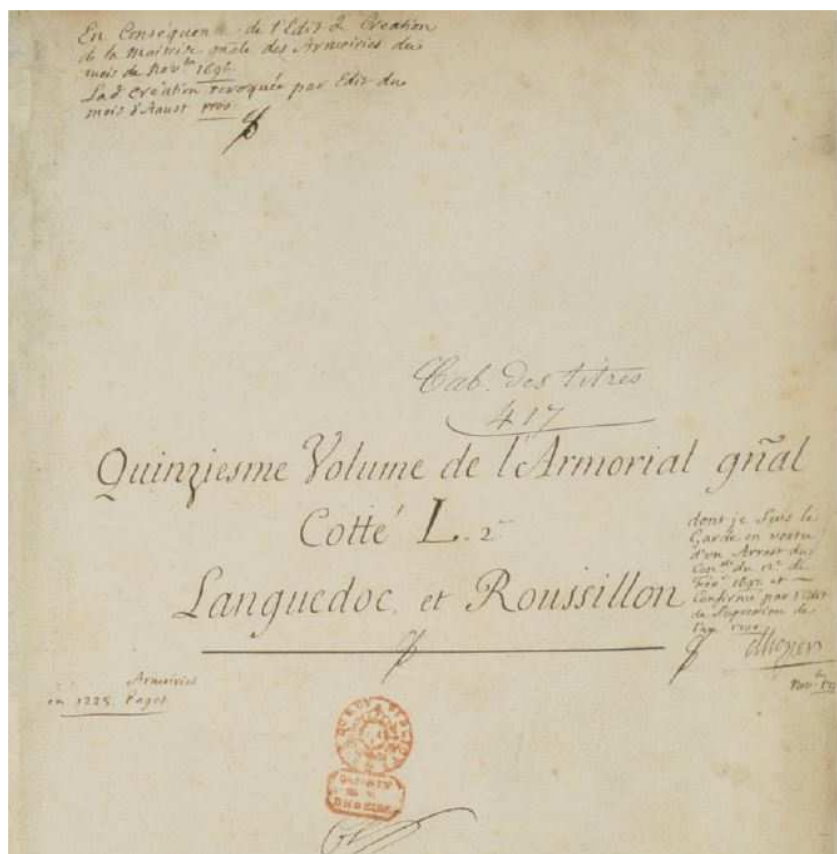 En Conséquence de l'Edit de Creation
de la Maitrise gnãle des Armoiries du
mois de Nov.bre 1696.
Lad. Création revoquée par Edit du
mois d'Aoust 1700.
Cab. des titres
417
Quinziesme Volume de l'Armorial gñal
Cotté L. 2
Languedoc et Roussillon
dont je suis le
Garde en vertu
d'un Arrest du
Con. du
et
Confirmé par l'Edit
de Supression de
Armoiries
en 1225 Pages